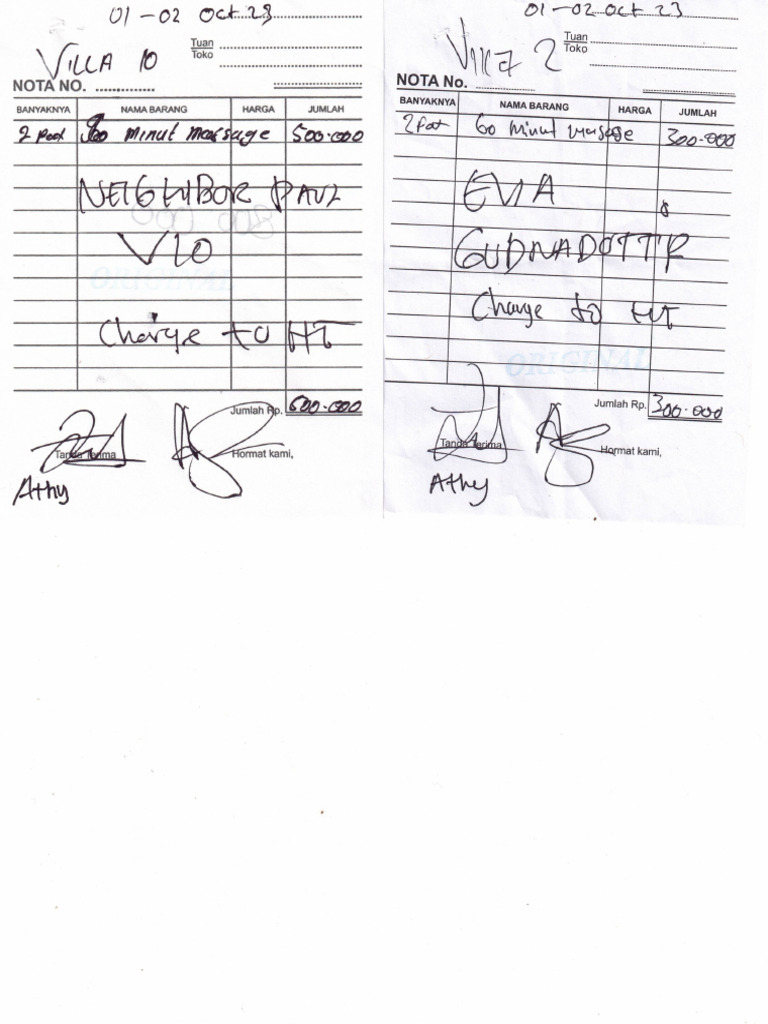 01-02 Oct 23
VILLA 10
Tuan
Toko
NOTA NO. ..............
BANYAKNYA NAMA BARANG HARGA JUMLAH
2 minut massage 500.000
NEIGHBOR PAUL
V10
ORIGINAL
Charge to HT
Jumlah Rp. 500.000
Tanda Terima Hormat kami,
Athy
01-02 Oct 23
Villa 2
Tuan
Toko
NOTA No. ..............
BANYAKNYA NAMA BARANG HARGA JUMLAH
2 60 minut massage 300.000
EVA
GUDNADOTTR
Charge to HT
ORIGINAL
Jumlah Rp. 300.000
Tanda Terima Hormat kami,
Athy